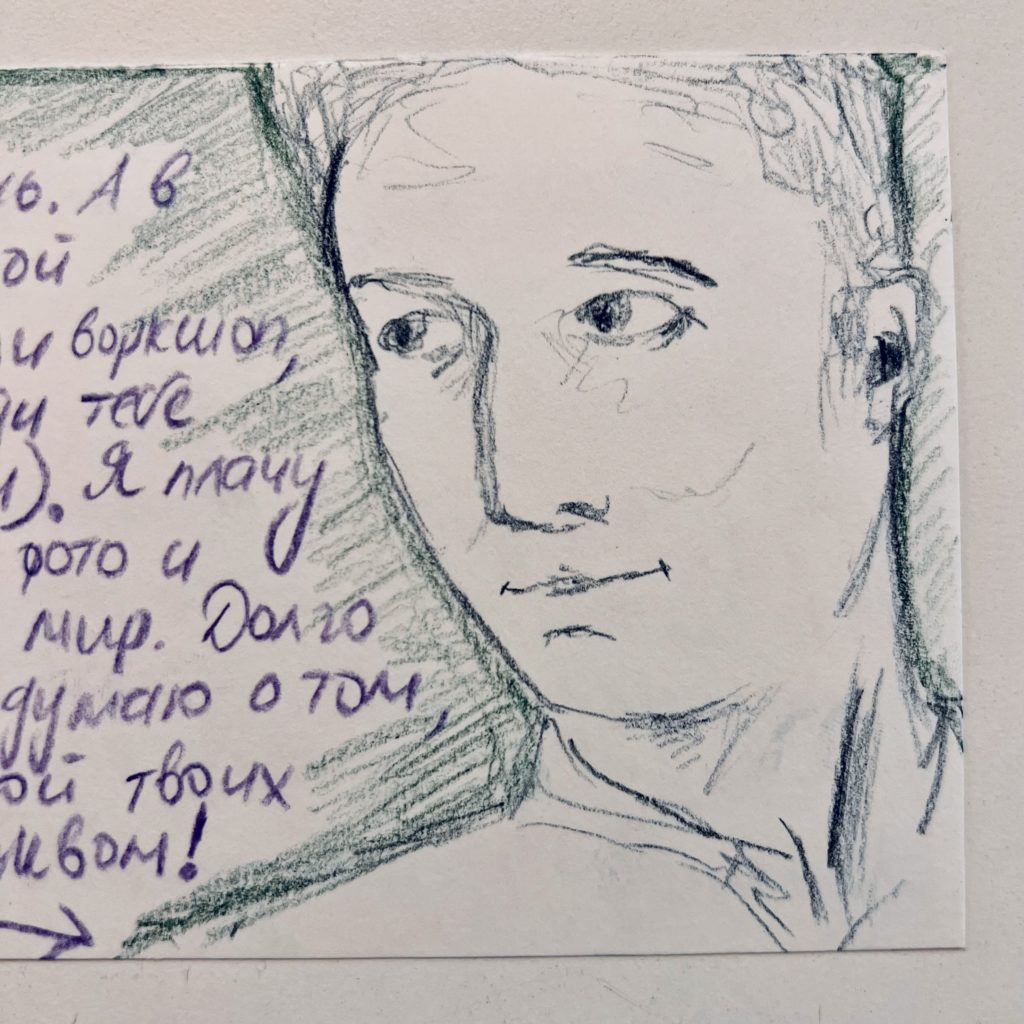 нь. А в
ой
и воркшоп,
ди тебе
и). Я плачу
фото и
мир. Долго
думаю о том,
ой твоих
ливом!